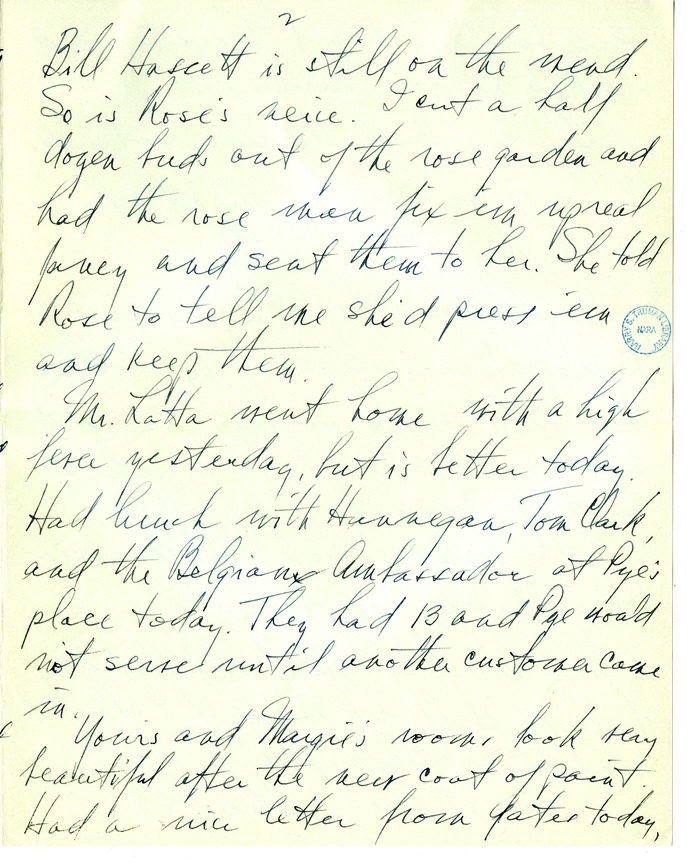 2
Bill Hassett is still on the mend.
So is Rose's neice. I cut a half
dozen buds out of the rose garden and
had the rose man fix 'em up real
fancy and sent them to her. She told
Rose to tell me she'd press 'em
and keep them.
Mr. Latta went home with a high
fever yesterday, but is better today.
Had lunch with Hannegan, Tom Clark,
and the Belgian Ambassador at Pye's
place today. They had 13 and Pye would
not serve until another customer came
in.
Yours and Margie's rooms look very
beautiful after the new coat of paint.
Had a nice letter from today,
HARRY S. TRUMAN LIBRARY
NARA